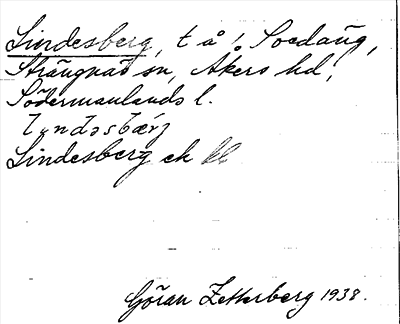 Lindesberg, t å! Soedaŭg,
Strängnäs sn, Åkers hd,
Södermanlands l.
Lindesberg ek kl
Göran Zetterberg 1938.